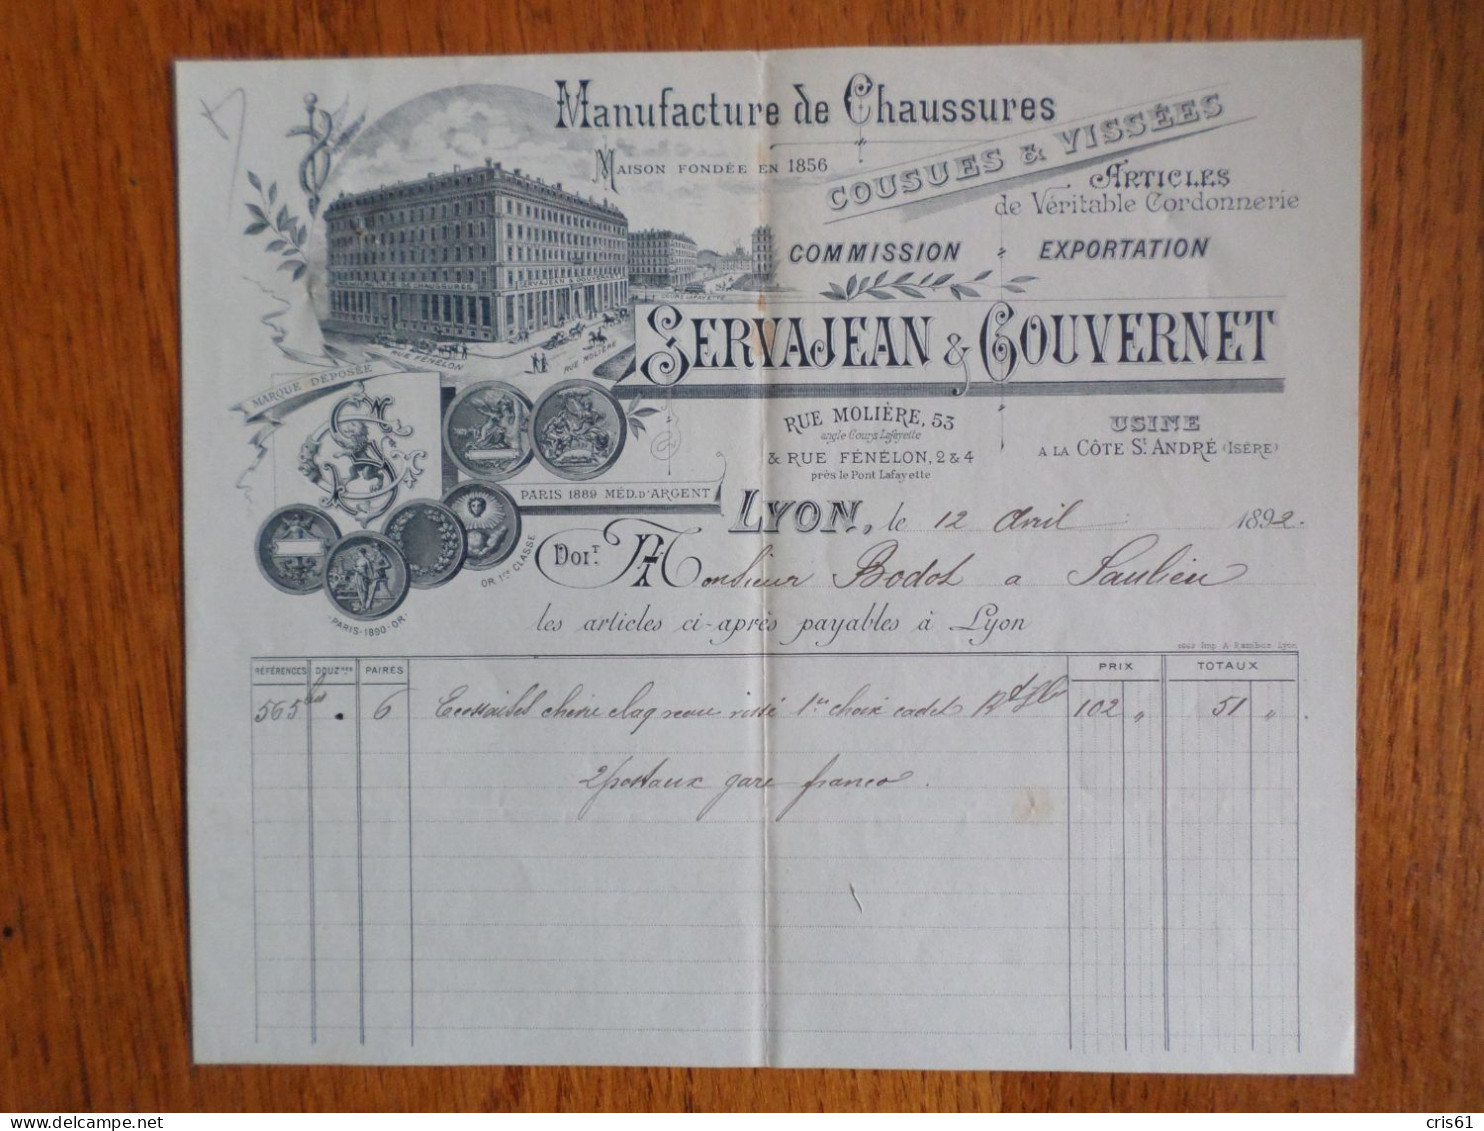 Manufacture de Chaussures
MAISON FONDÉE EN 1856
COUSUES & VISSÉES
ARTICLES
de Véritable Cordonnerie
COMMISSION EXPORTATION
SERVAJEAN & GOUVERNET
RUE FÉNÉLON
RUE MOLIÈRE
MARQUE DÉPOSÉE
RUE MOLIÈRE, 53
angle Cours Lafayette
& RUE FÉNÉLON, 2 & 4
près le Pont Lafayette
USINE
A LA CÔTE ST ANDRÉ (ISÈRE)
PARIS 1889 MÉD. D'ARGENT
OR 1re CLASSE
PARIS-1890-OR
LYON, le 12 Avril 1892.
DOIT Monsieur Bodot a Saulieu
les articles ci-après payables à Lyon
Imp. Lyon
RÉFÉRENCES DOUZnes PAIRES PRIX TOTAUX
565 6 vissé 1er choix cadet 102 " 51 "
2 postaux gare franco.
delcampe.net
cris61